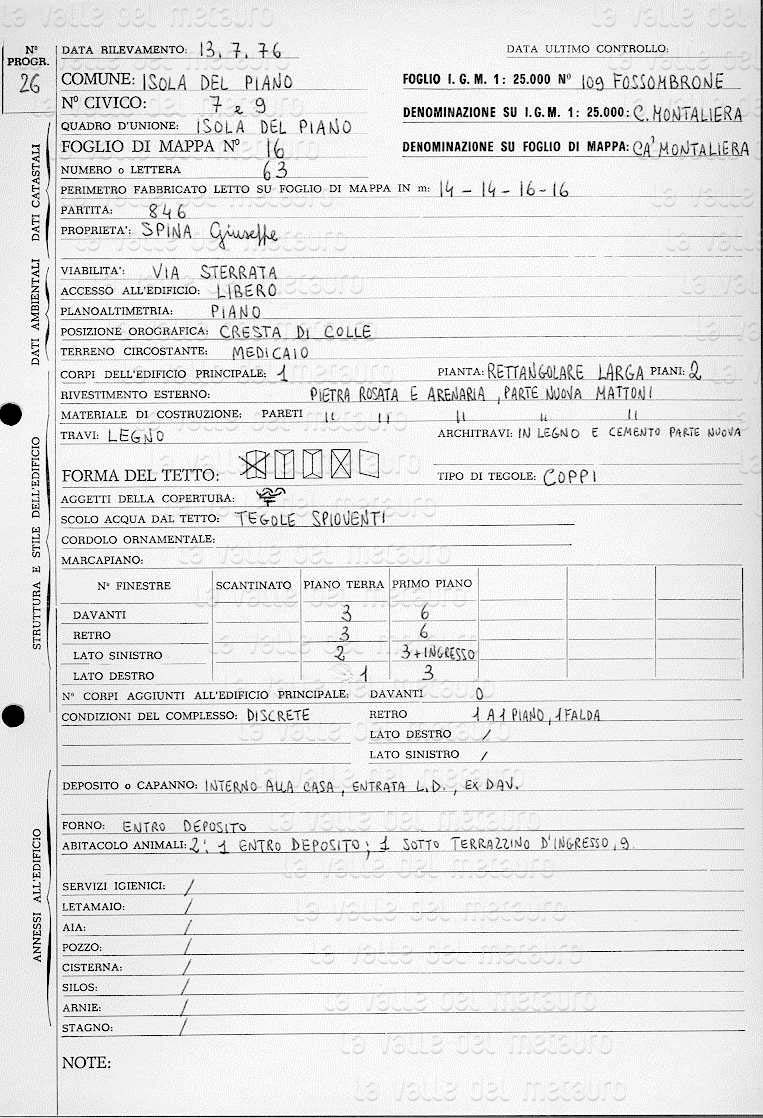 la valle del metauro
N° PROGR. 26
DATA RILEVAMENTO: 13.7.76 DATA ULTIMO CONTROLLO:
COMUNE: ISOLA DEL PIANO FOGLIO I.G.M. 1: 25.000 N° 109 FOSSOMBRONE
N° CIVICO: 7 e 9 DENOMINAZIONE SU I.G.M. 1: 25.000: C. MONTALIERA
QUADRO D'UNIONE: ISOLA DEL PIANO
FOGLIO DI MAPPA N° 16 DENOMINAZIONE SU FOGLIO DI MAPPA: CA' MONTALIERA
NUMERO o LETTERA 63
PERIMETRO FABBRICATO LETTO SU FOGLIO DI MAPPA IN m: 14 - 14 - 16 - 16
PARTITA: 846
PROPRIETA': SPINA Giuseppe
DATI CATASTALI
VIABILITA': VIA STERRATA
ACCESSO ALL'EDIFICIO: LIBERO
PLANOALTIMETRIA: PIANO
POSIZIONE OROGRAFICA: CRESTA DI COLLE
TERRENO CIRCOSTANTE: MEDICAIO
DATI AMBIENTALI
CORPI DELL'EDIFICIO PRINCIPALE: 1 PIANTA: RETTANGOLARE LARGA PIANI: 2
RIVESTIMENTO ESTERNO: PIETRA ROSATA E ARENARIA, PARTE NUOVA MATTONI
MATERIALE DI COSTRUZIONE: PARETI " " " " "
TRAVI: LEGNO ARCHITRAVI: IN LEGNO E CEMENTO PARTE NUOVA
FORMA DEL TETTO: TIPO DI TEGOLE: COPPI
AGGETTI DELLA COPERTURA:
SCOLO ACQUA DAL TETTO: TEGOLE SPIOVENTI
CORDOLO ORNAMENTALE:
MARCAPIANO:
STRUTTURA E STILE DELL'EDIFICIO
N° FINESTRE SCANTINATO PIANO TERRA PRIMO PIANO
DAVANTI 3 6
RETRO 3 6
LATO SINISTRO 2 3 + INGRESSO
LATO DESTRO 1 3
N° CORPI AGGIUNTI ALL'EDIFICIO PRINCIPALE: DAVANTI 0
CONDIZIONI DEL COMPLESSO: DISCRETE RETRO 1 A 1 PIANO, 1 FALDA
LATO DESTRO /
LATO SINISTRO /
DEPOSITO o CAPANNO: INTERNO ALLA CASA, ENTRATA L.D., EX DAV.
FORNO: ENTRO DEPOSITO
ABITACOLO ANIMALI: 2: 1 ENTRO DEPOSITO; 1 SOTTO TERRAZZINO D'INGRESSO, 9.
SERVIZI IGIENICI: /
LETAMAIO: /
AIA: /
POZZO: /
CISTERNA: /
SILOS: /
ARNIE: /
STAGNO: /
ANNESSI ALL'EDIFICIO
NOTE: